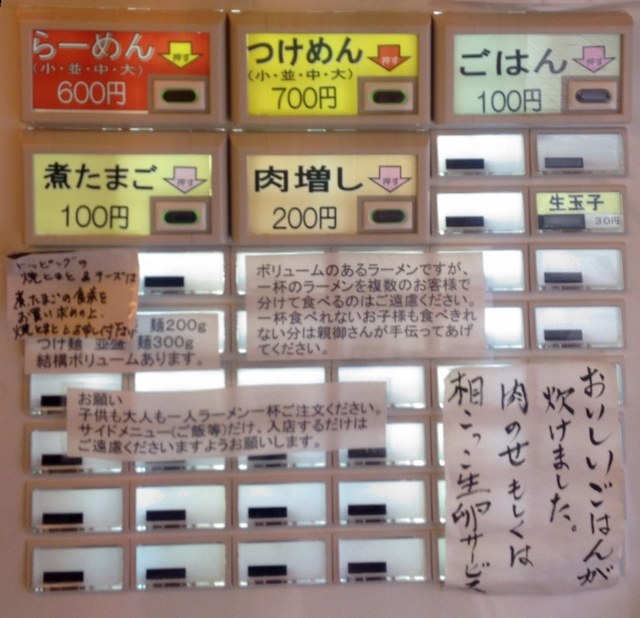 らーめん
押す
(小・並・中・大)
600円
つけめん
押す
(小・並・中・大)
700円
ごはん
押す
100円
煮たまご
押す
100円
肉増し
押す
200円
生玉子
30円
トッピングの
焼トマト&チーズは
煮たまごの食券を
お買い求めの上、
麺200g
つけ麺 並盛 麺300g
結構ボリュームあります。
ボリュームのあるラーメンですが、
一杯のラーメンを複数のお客様で
分けて食べるのはご遠慮ください。
一杯食べれないお子様も食べきれ
ない分は親御さんが手伝ってあげ
てください。
お願い
子供も大人も一人ラーメン一杯ご注文ください。
サイドメニュー(ご飯等)だけ、入店するだけは
ご遠慮くださいますようお願いします。
おいしいごはんが
炊けました。
肉のせもしくは
相こっこ生卵サービス